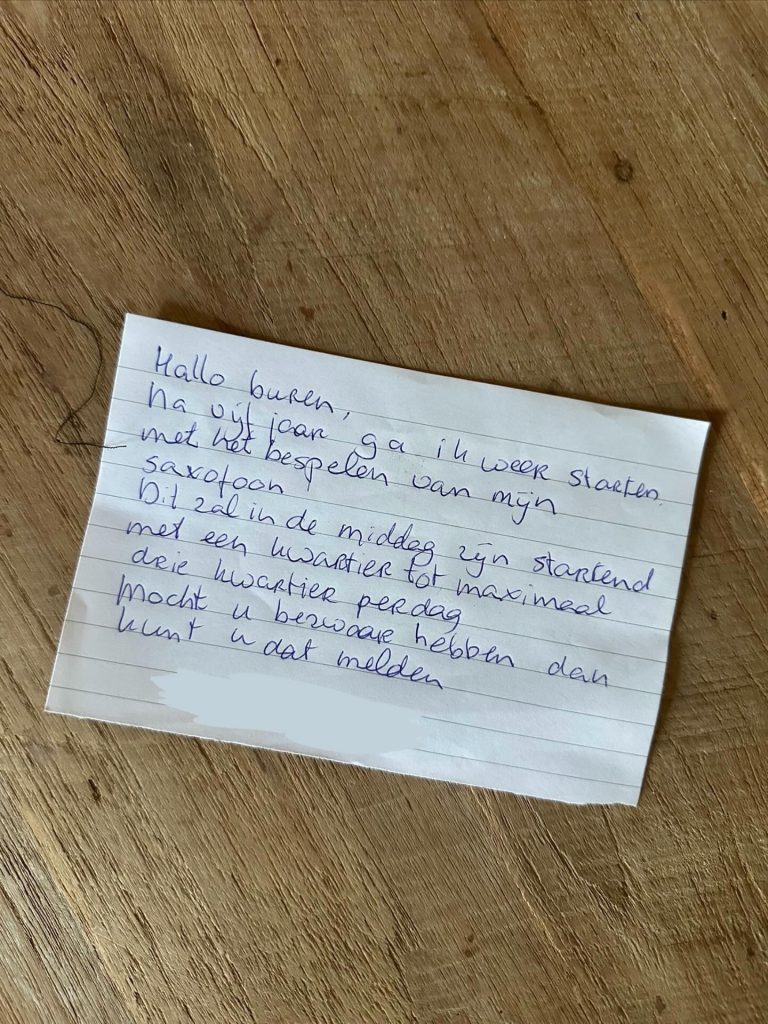 Hallo buren,
Na vijf jaar ga ik weer starten
met het bespelen van mijn
saxofoon
Dit zal in de middag zijn startend
met een kwartier tot maximaal
drie kwartier per dag
Mocht u bezwaar hebben dan
kunt u dat melden